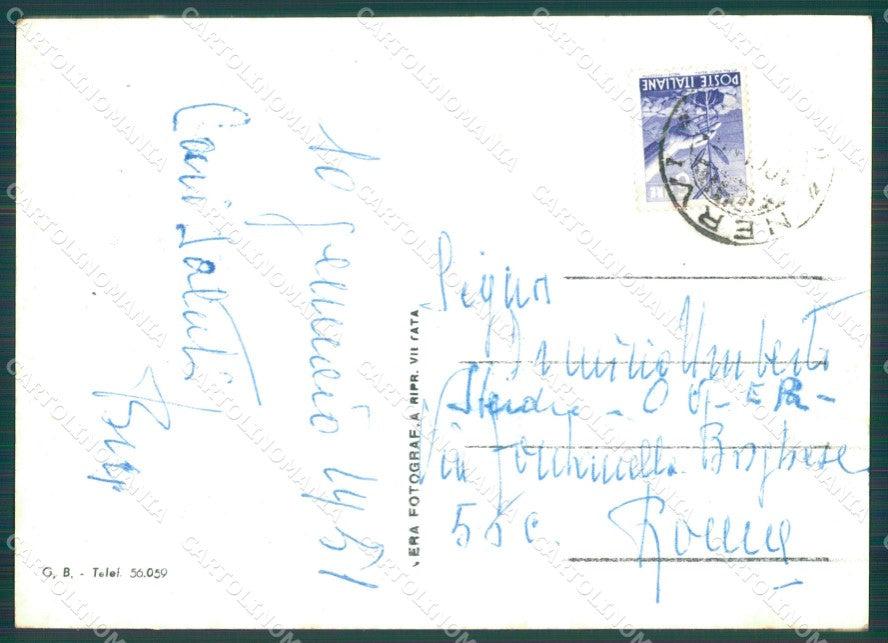 10 gennaio 1951
Cari Saluti
POSTE ITALIANE
LIRE
NERVI
Signor
Umberto
Studio - O
Via Fontanella Borghese
55c. Roma
VERA FOTOGRAFIA RIPR. VIETATA
G. B. - Telef. 56.059
CARTOLINOMANIA